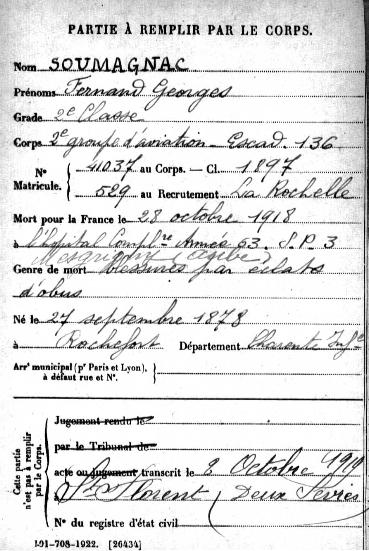 PARTIE À REMPLIR PAR LE CORPS.
Nom SOUMAGNAC
Prénoms Fernand Georges
Grade 2e Classe
Corps 2e groupe d'aviation - Escad. 136
N° Matricule. 11037 au Corps. — Cl. 1897
529 au Recrutement La Rochelle
Mort pour la France le 28 octobre 1918
à l'hôpital Compl.re Armée 63. S.P. 3
Mesgrigny (Aube)
Genre de mort blessures par éclats
d'obus
Né le 27 septembre 1878
à Rochefort Département Charente Infre
Arrt municipal (pr Paris et Lyon), à défaut rue et N°.
Cette partie n'est pas à remplir par le Corps.
Jugement rendu le
par le Tribunal de
acte ou jugement transcrit le 2 Octobre 1919
à St Florent (Deux Sèvres
N° du registre d'état civil
191-708-1922. [26434]